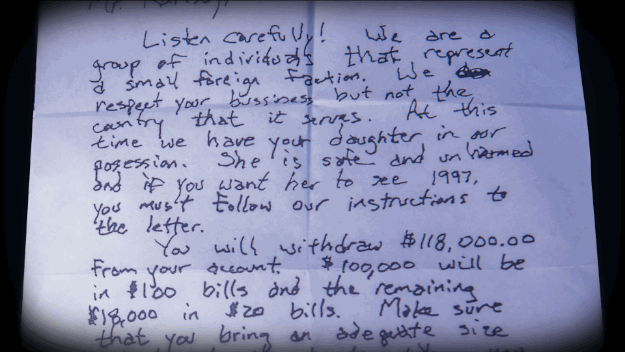 Mr. Ramsey,
Listen carefully! We are a
group of individuals that represent
a small foreign faction. We
respect your bussiness but not the
country that it serves. At this
time we have your daughter in our
posession. She is safe and unharmed
and if you want her to see 1997,
you must follow our instructions to
the letter.
You will withdraw $118,000.00
from your account. $100,000 will be
in $100 bills and the remaining
$18,000 in $20 bills. Make sure
that you bring an adequate size